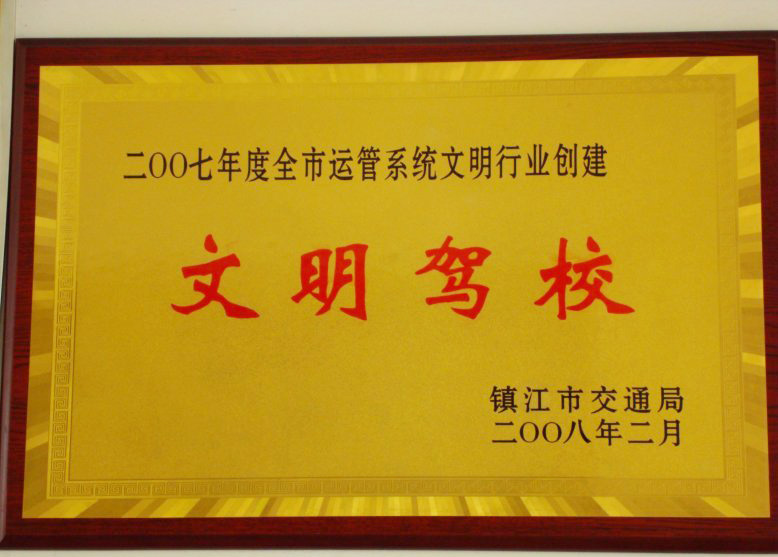 二〇〇七年度全市运管系统文明行业创建
文明驾校
镇江市交通局
二〇〇八年二月